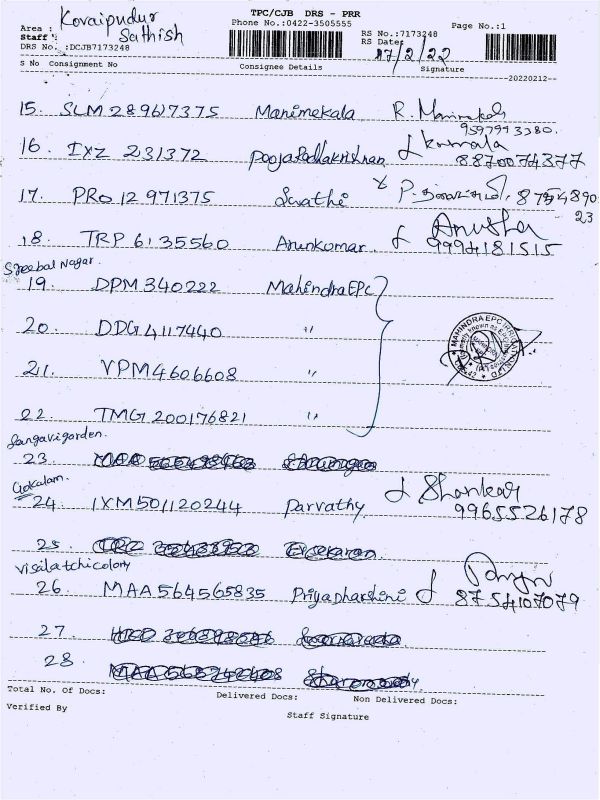 TPC/CJB DRS - PRR
Area : Kovaipudur
Phone No.:0422-3505555
Page No.:1
Staff : Sathish
RS No.:7173248
DRS No. :DCJB7173248
RS Date: 17/2/22
S No Consignment No Consignee Details Signature
20220212
15. SLM 289617375 Manimekala R. Manimekala
9597993380.
16. IXZ 231372 Pooja Radhakrishnan Kamala
8870074377
17. PRO 12 971375 Swathi P. 8754890
23
18. TRP 6135560 Arunkumar Anusha
9994181515
Sreebal Nagar.
19. DPM 340222 Mahindra EPC
20. DDG 4117440 "
MAHINDRA EPC IRRIGATION LTD
21. VPM 4606608 "
22. TMG 200176821 "
Sangavigarden.
23.
Gokalam.
24. IXM 501120244 Parvathy Shankar
9965526178
25.
Visilatchicolony
26. MAA 564565835 Priyadharshini
8754107079
27.
28.
Total No. Of Docs: Delivered Docs: Non Delivered Docs:
Verified By
Staff Signature